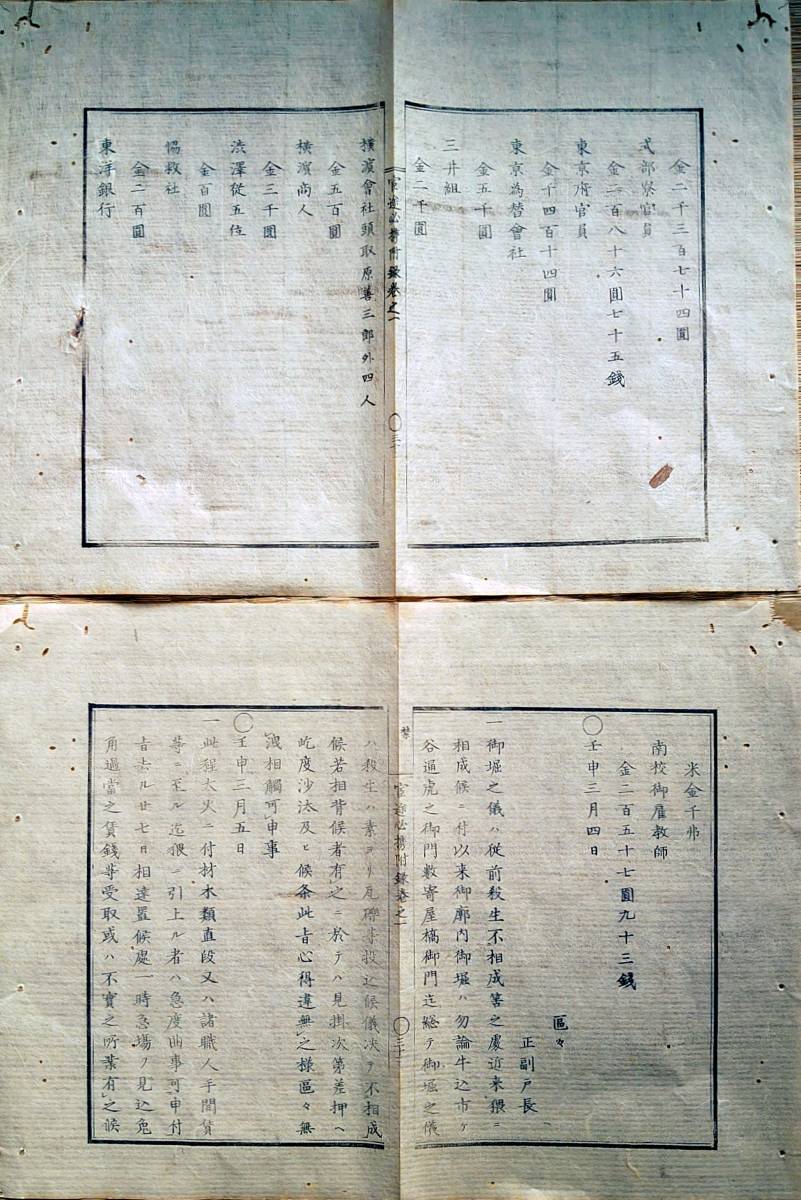 金二千三百七十四圓
式部寮官員
金二百八十六圓七十五錢
東京府官員
金千四百十四圓
東京為替會社
金五千圓
三井組
金二千圓
官途必携附錄卷之一
〇三
橫濵會社頭取原善三郎外四人
金五百圓
橫濵商人
金三千圓
渋澤從五位
金百圓
協救社
金二百圓
東洋銀行
米金千弗
南校御雇教師
金二百五十七圓九十三錢
〇壬申三月四日
區々
正副戸長
一御堀之儀ハ從前殺生不相成筈之處近来猥ニ
相成候ニ付以来御廓内御堀ハ勿論牛込市ヶ
谷通虎之御門數寄屋橋御門迄総テ御堀之儀
官途必携附錄卷之一
ハ殺生ハ素ヨリ瓦礫等投込候儀决テ不相成
候若相背候者有之ニ於テハ見掛次第差押ヘ
屹度沙汰及ヒ候条此旨心得違無之様區々無
洩相觸可申事
〇壬申三月五日
一此程大火ニ付材木類直段又ハ諸職人手間賃
等ニ至ル迄猥ニ引上ル者ハ急度曲事可申付
旨去ル廿七日相達置候處一時急場ヲ見込兎
角過當之賃錢等受取或ハ不實之所業有之候